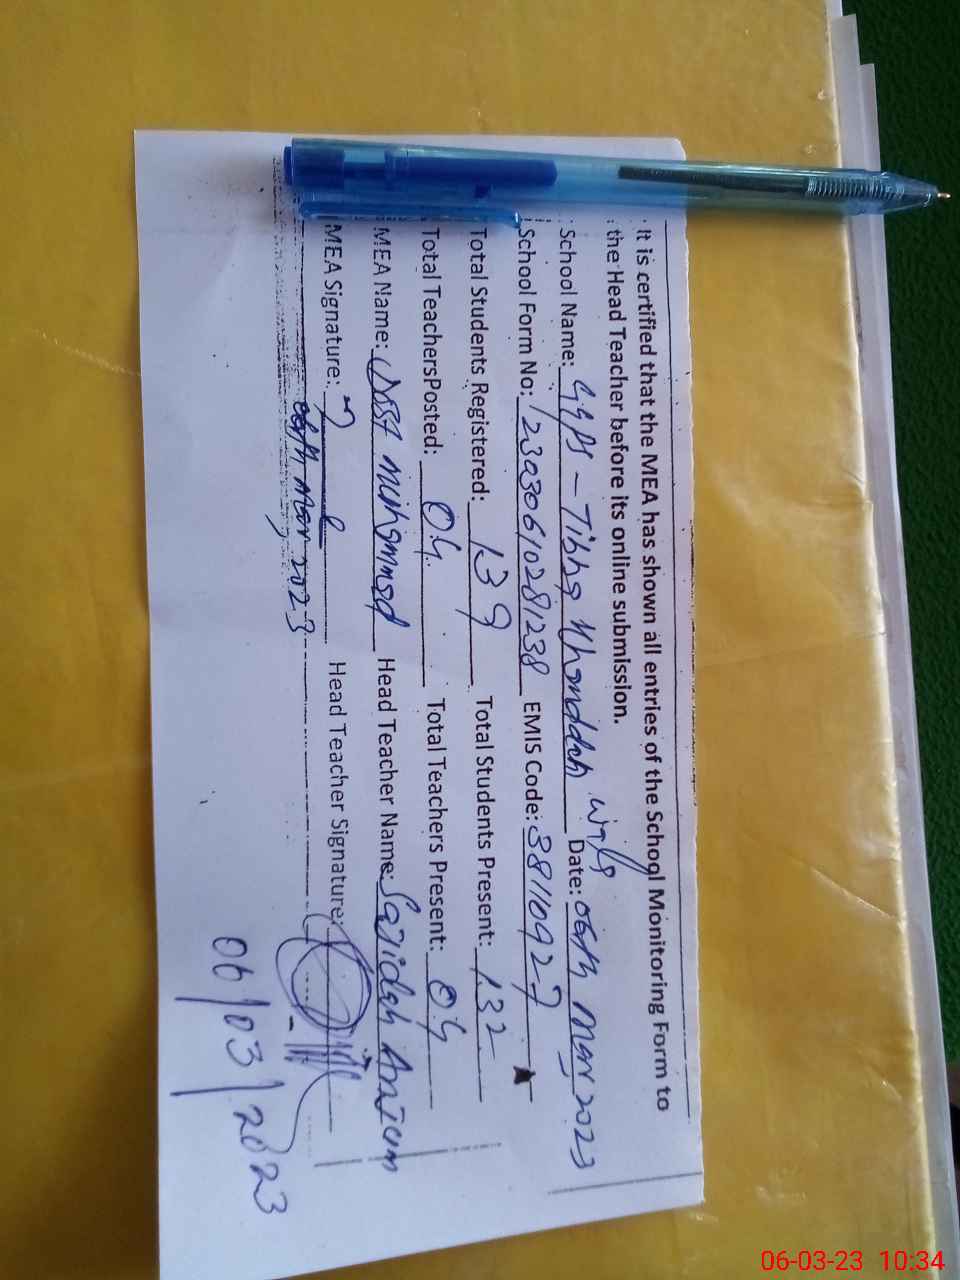 It is certified that the MEA has shown all entries of the School Monitoring Form to
the Head Teacher before its online submission.
School Name: GGPS - Tibba Khanddah Date: 06th Mar, 2023
School Form No: 2303061028l238 EMIS Code: 38110927
Total Students Registered: 139 Total Students Present: 132
Total TeachersPosted: 04 Total Teachers Present: 04
MEA Name: Dost Muhammad Head Teacher Name: Sajidah Anjum
MEA Signature: Head Teacher Signature:
06th Mar, 2023
06/03/2023
06-03-23 10:34